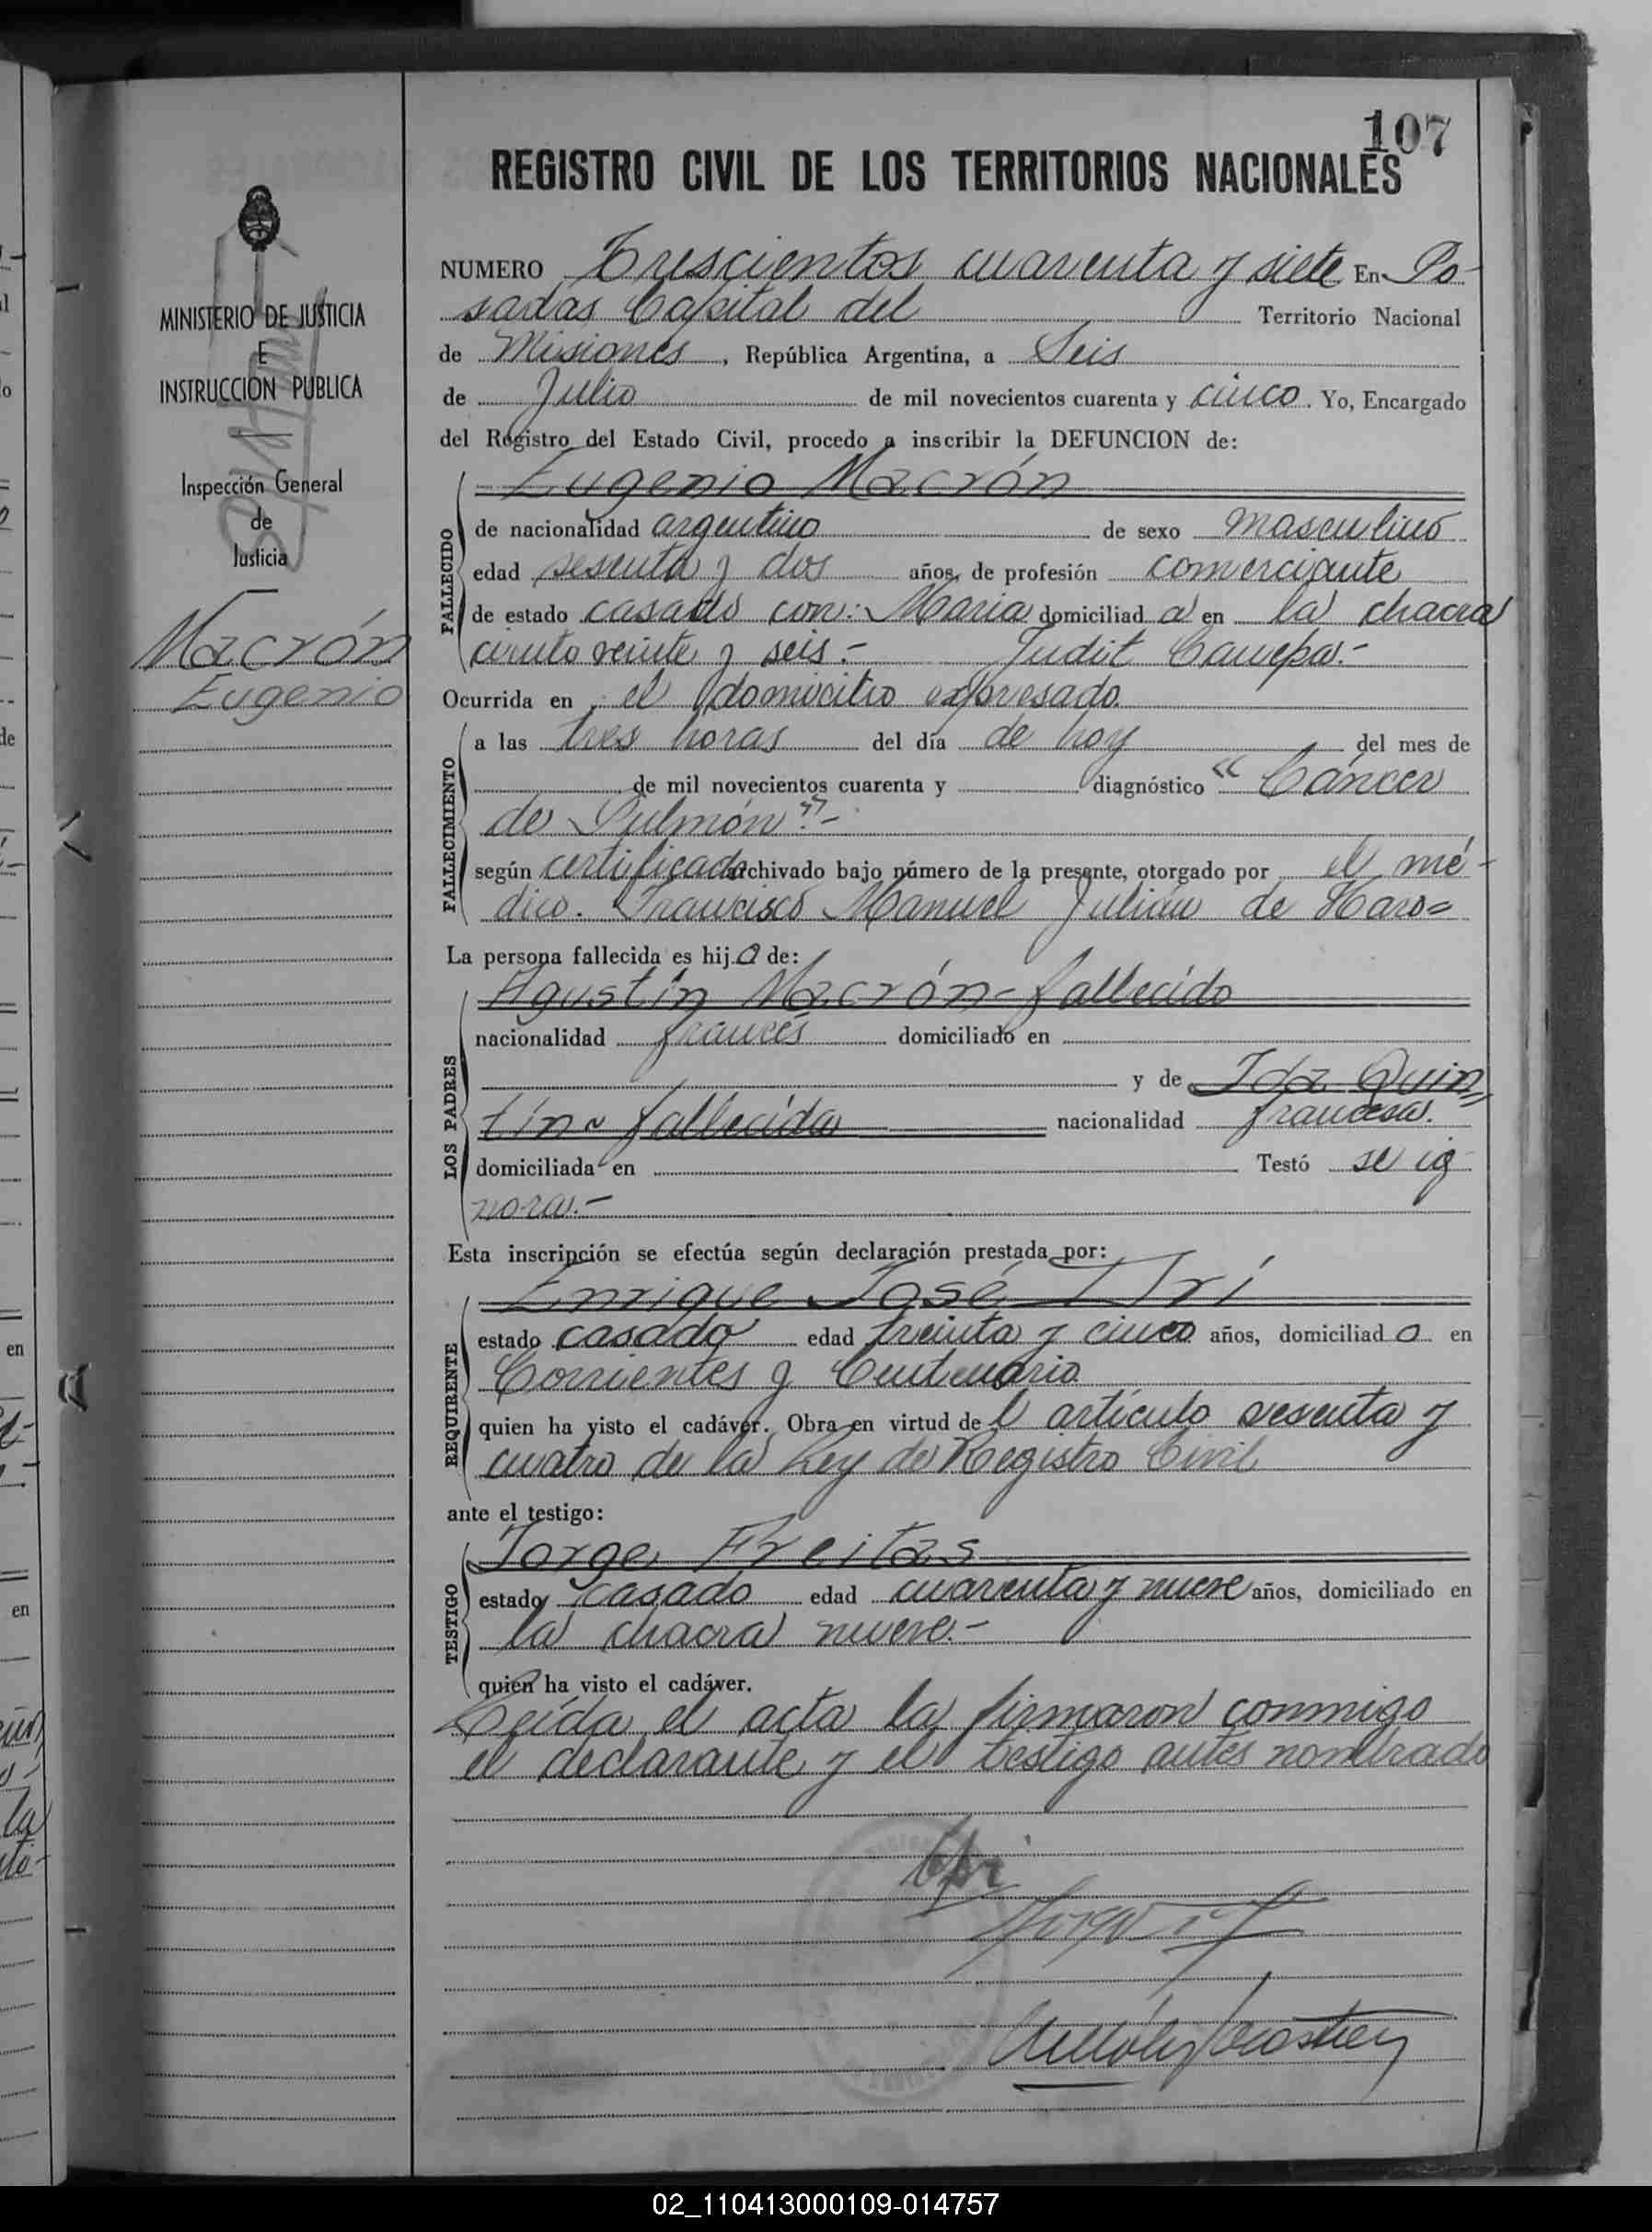 107
REGISTRO CIVIL DE LOS TERRITORIOS NACIONALES
MINISTERIO DE JUSTICIA
E
INSTRUCCION PUBLICA
Inspección General
de
Justicia
Macrón
Eugenio
NUMERO Trescientos cuarenta y siete En Po-
sadas Capital del Territorio Nacional
de Misiones, República Argentina, a Seis
de Julio de mil novecientos cuarenta y cinco. Yo, Encargado
del Registro del Estado Civil, procedo a inscribir la DEFUNCION de:
Eugenio Macrón
FALLECIDO
de nacionalidad argentino de sexo masculino
edad sesenta y dos años, de profesión comerciante
de estado casado con: Maria domiciliad a en la chacra
ciento veinte y seis.- Judit Canepa.-
Ocurrida en el domicilio expresado.
FALLECIMIENTO
a las tres horas del día de hoy del mes de
de mil novecientos cuarenta y diagnóstico "Cáncer
de Pulmón".-
según certificado archivado bajo número de la presente, otorgado por el mé-
dico. Francisco Manuel Julián de Haro=
La persona fallecida es hijo de:
LOS PADRES
Agustín Macrón-fallecido
nacionalidad francés domiciliado en
y de Ida Quin=
tín-fallecida nacionalidad francesa.
domiciliada en Testó se ig
nora.-
Esta inscripción se efectúa según declaración prestada por:
REQUIRENTE
Enrique José
estado casado edad treinta y cinco años, domiciliado en
Corrientes y Centenario
quien ha visto el cadáver. Obra en virtud del artículo sesenta y
cuatro de la Ley de Registro Civil
ante el testigo:
TESTIGO
Jorge Freitas
estado casado edad cuarenta y nueve años, domiciliado en
la chacra nueve.-
quien ha visto el cadáver.
Leída el acta la firmaron conmigo
el declarante y el testigo antes nombrado
02_110413000109-014757